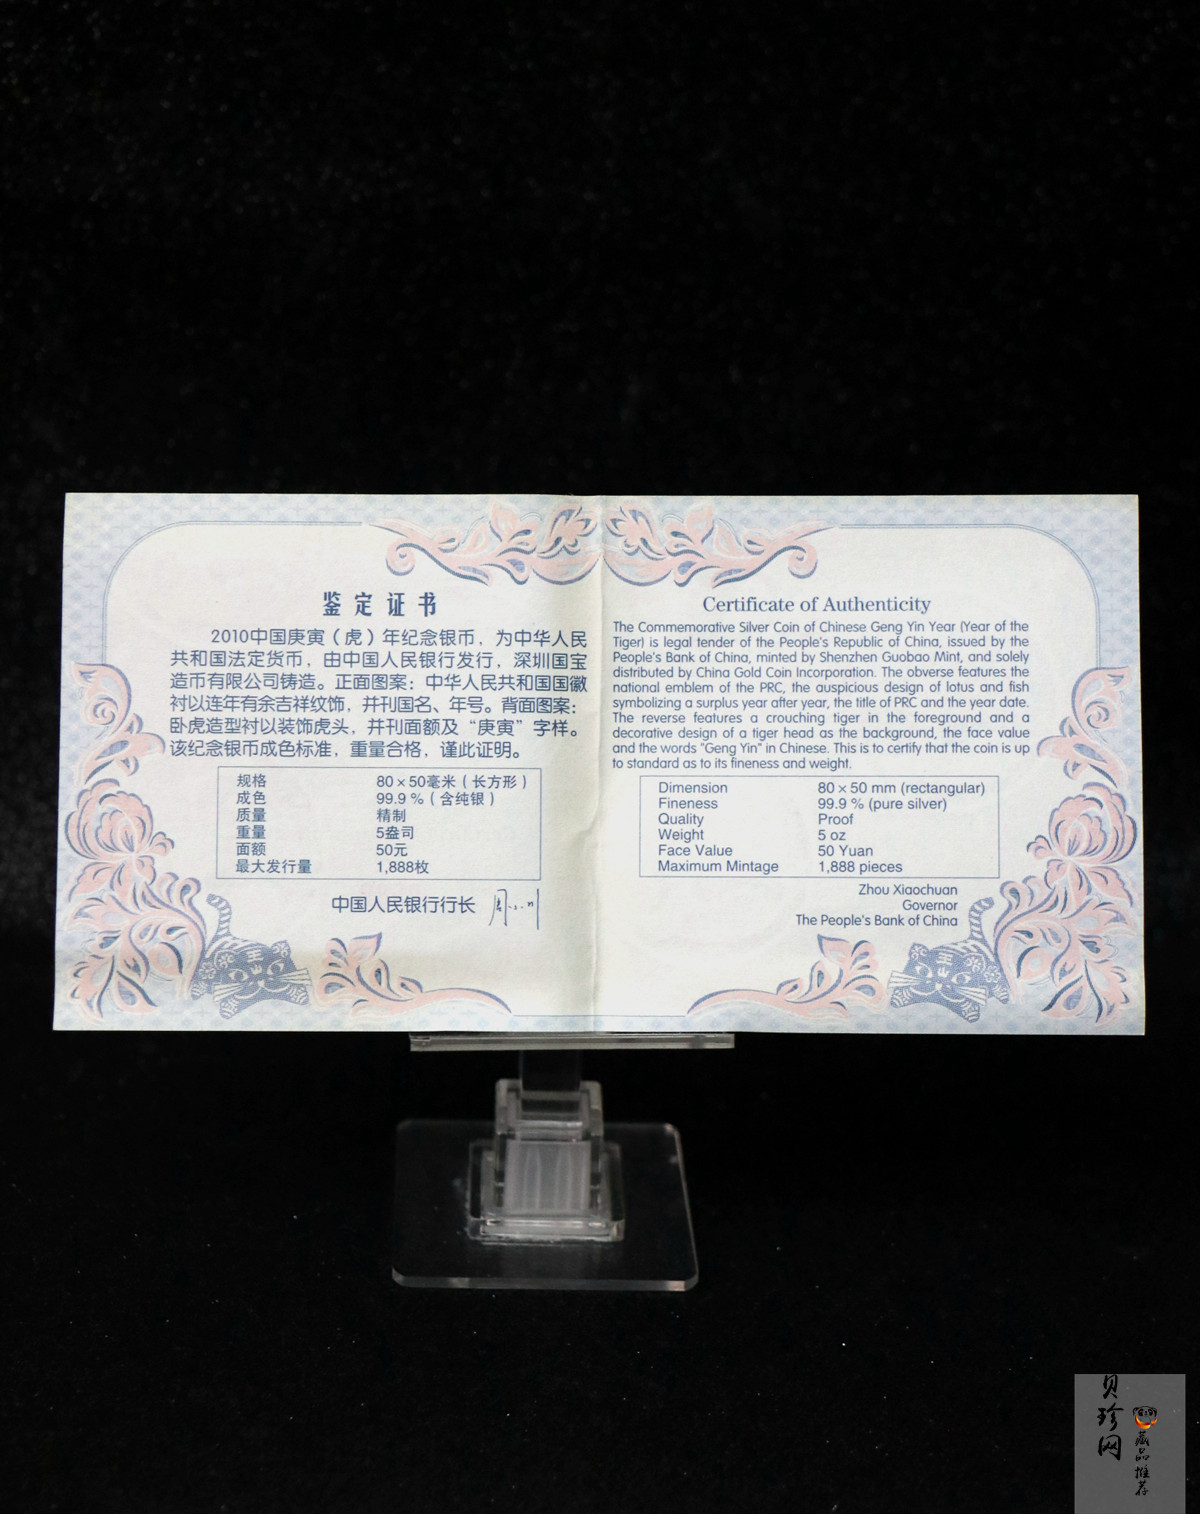 鉴定证书
2010中国庚寅（虎）年纪念银币，为中华人民
共和国法定货币，由中国人民银行发行，深圳国宝
造币有限公司铸造。正面图案：中华人民共和国国徽
衬以连年有余吉祥纹饰，并刊国名、年号。背面图案：
卧虎造型衬以装饰虎头，并刊面额及“庚寅”字样。
该纪念银币成色标准，重量合格，谨此证明。
规格 80×50毫米（长方形）
成色 99.9 %（含纯银）
质量 精制
重量 5盎司
面额 50元
最大发行量 1,888枚
中国人民银行行长
Certificate of Authenticity
The Commemorative Silver Coin of Chinese Geng Yin Year (Year of the
Tiger) is legal tender of the People's Republic of China, issued by the
People's Bank of China, minted by Shenzhen Guobao Mint, and solely
distributed by China Gold Coin Incorporation. The obverse features the
national emblem of the PRC, the auspicious design of lotus and fish
symbolizing a surplus year after year, the title of PRC and the year date.
The reverse features a crouching tiger in the foreground and a
decorative design of a tiger head as the background, the face value
and the words "Geng Yin" in Chinese. This is to certify that the coin is up
to standard as to its fineness and weight.
Dimension 80×50 mm (rectangular)
Fineness 99.9 % (pure silver)
Quality Proof
Weight 5 oz
Face Value 50 Yuan
Maximum Mintage 1,888 pieces
Zhou Xiaochuan
Governor
The People's Bank of China
贝珍网
藏品推荐